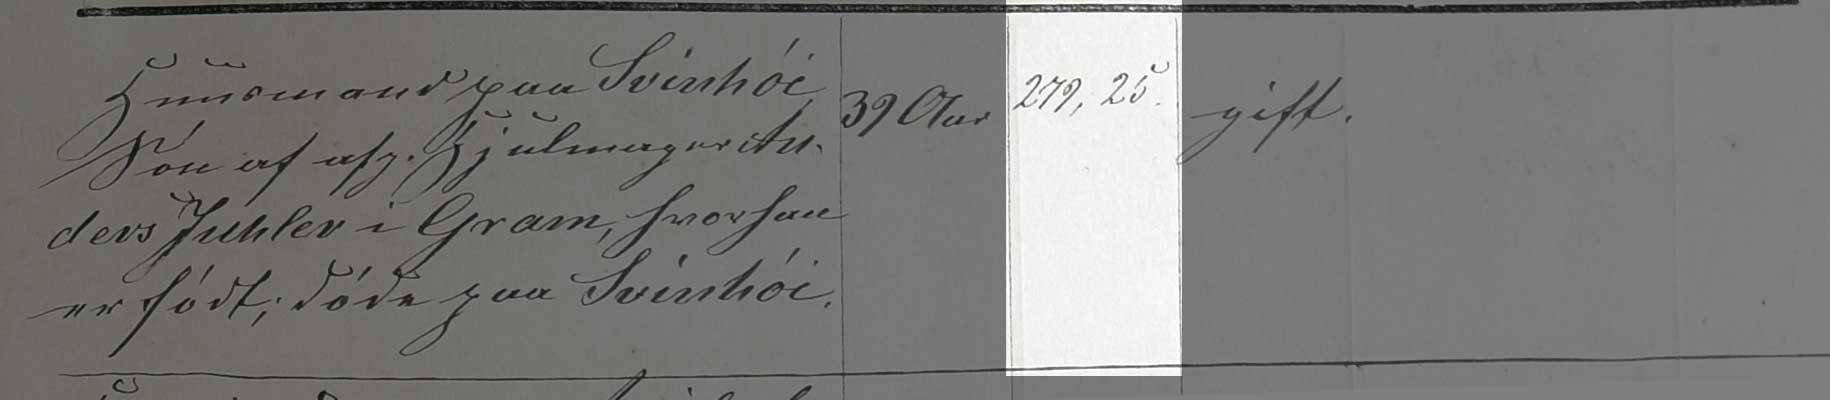 Huusmand paa Svinhöi, 39 Aar 279, 25. gift.
Sön af afg. Hjulmager An-
ders Juhler i Gram, hvor han
er födt; döde paa Svinhöi.